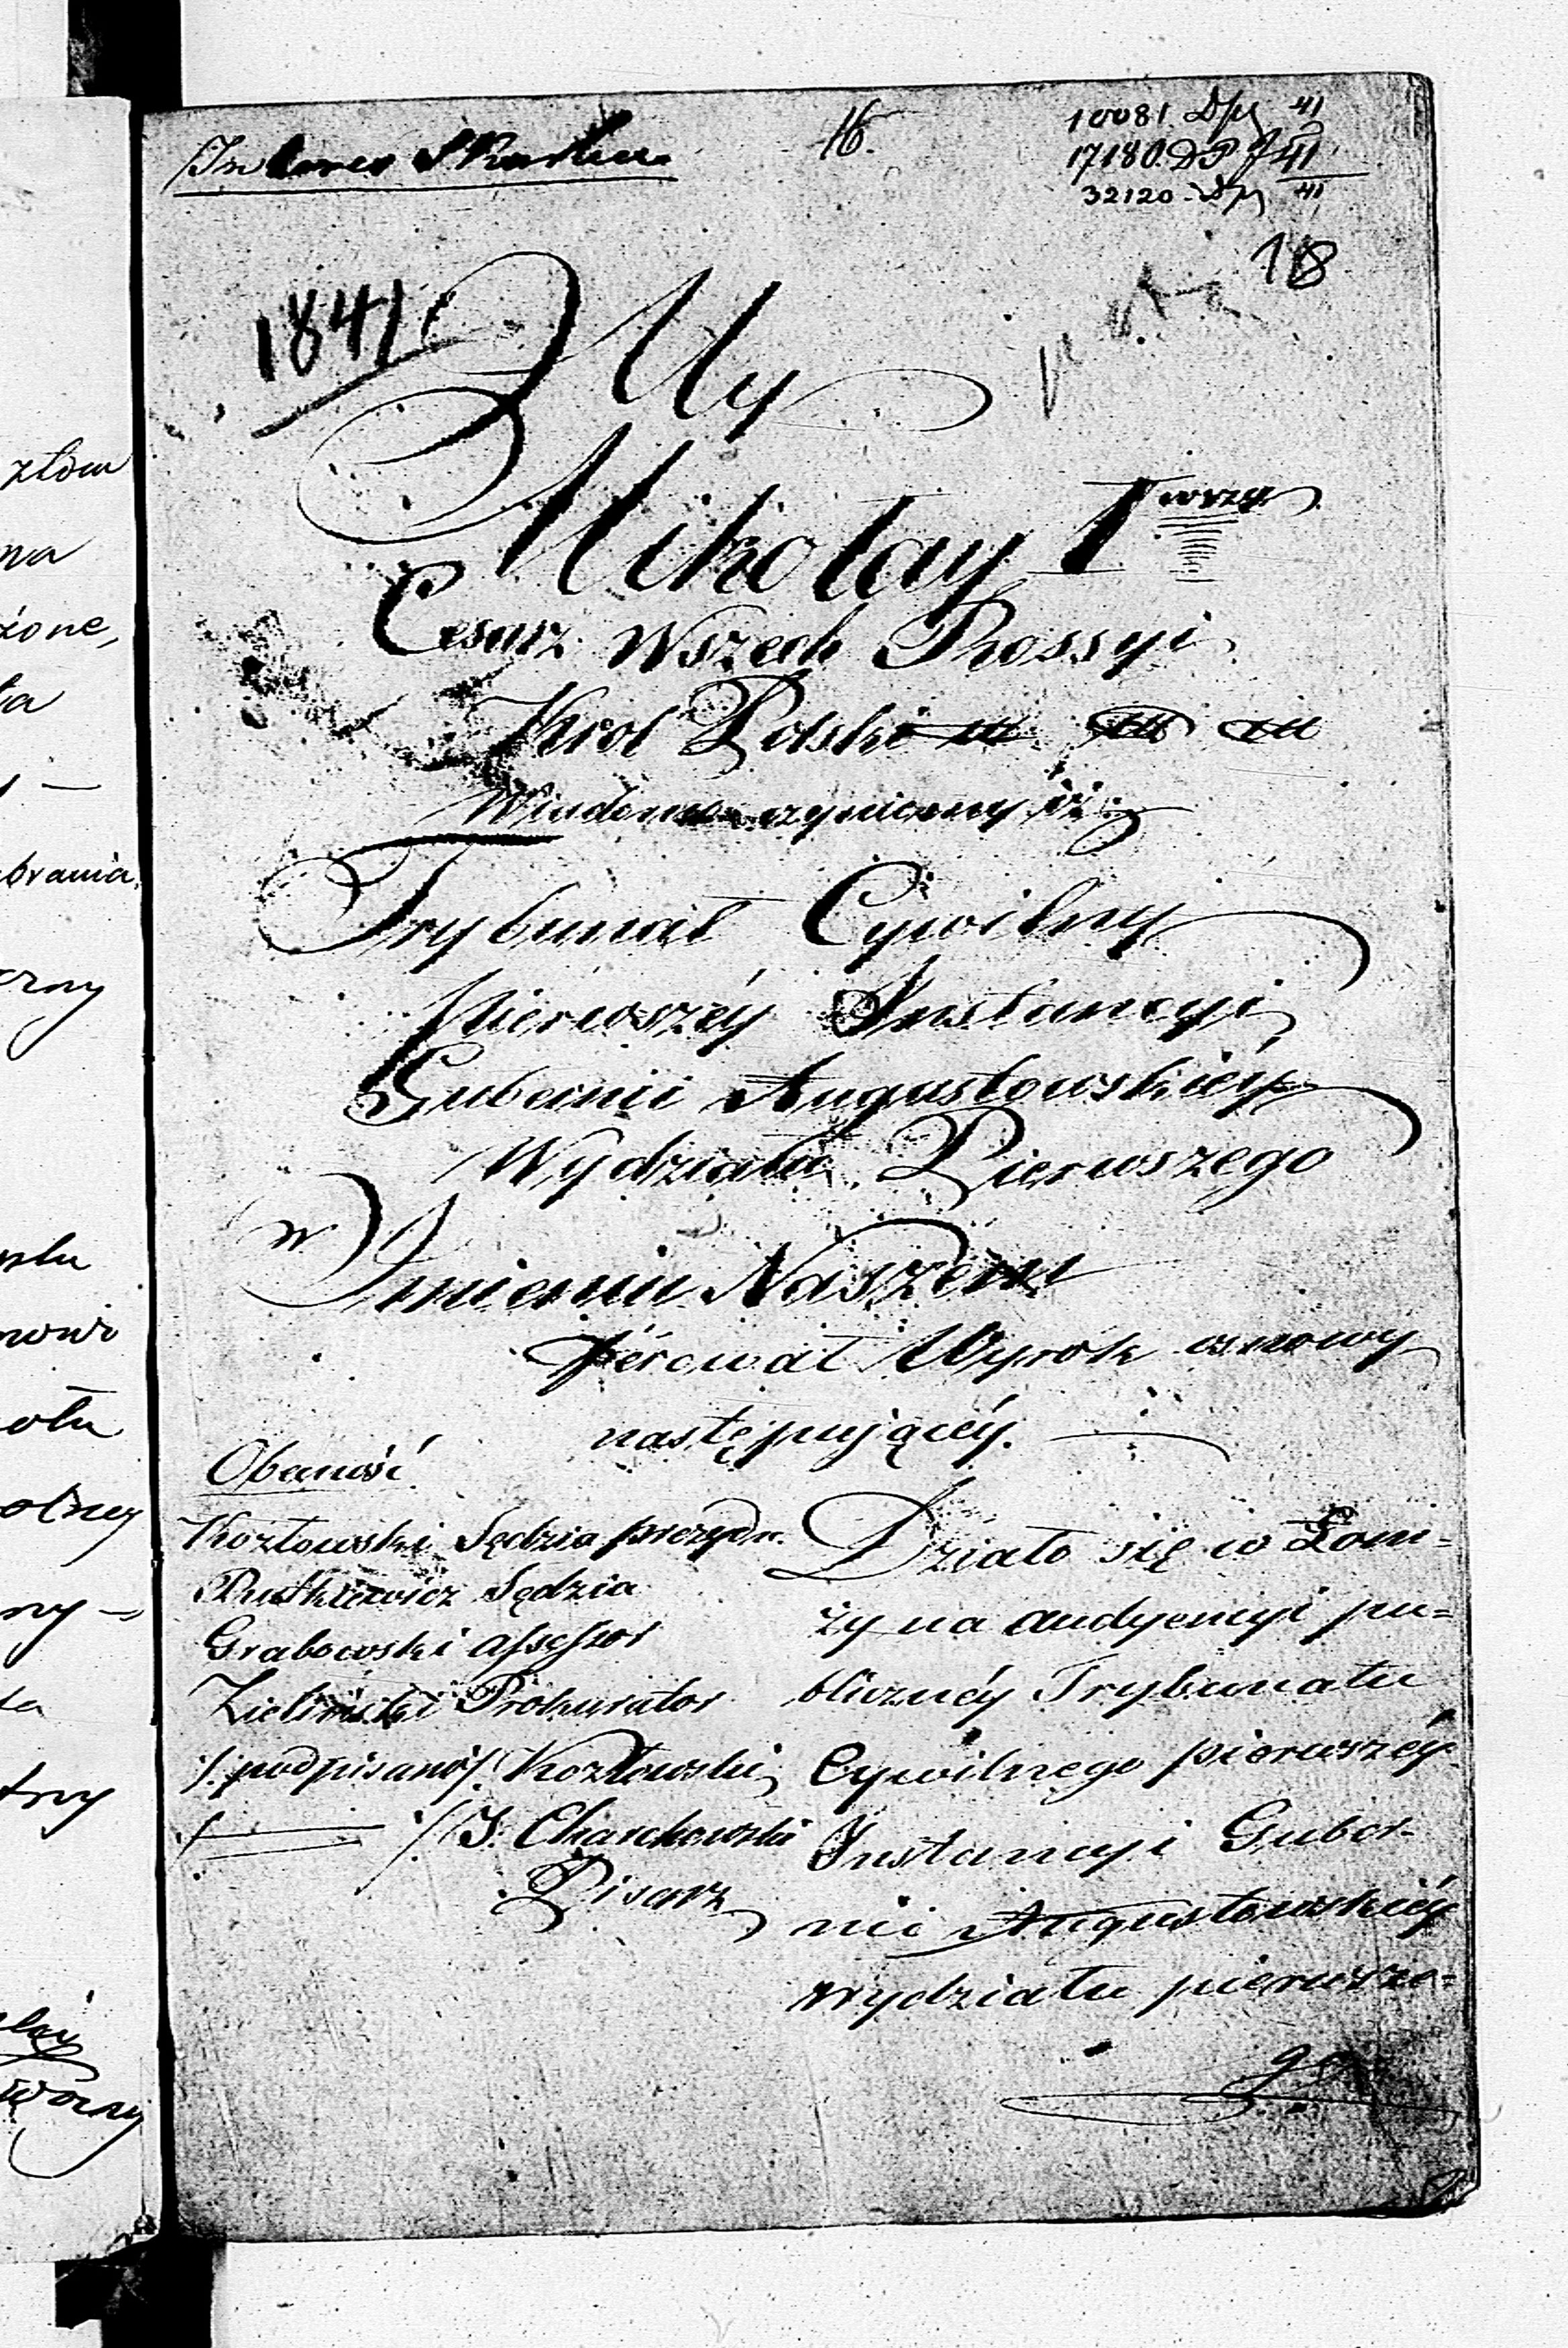 Interes Skarbu
16.
10081 Dpg 41
17180. DP 41
32120 - Dpg 41
18
1841
My
Mikołay Iwszy
Cesarz Wszech Rossyi
Krol Polski etc etc etc
Wiadomo czyniemy iż
Trybunał Cywilny
Pierwszéy Instancyi
Gubernii Augustowskiéy
Wydziału Pierwszego
w Imieniu Naszem
ferował Wyrok osnowy
następującéy.
Obecność
Kozłowski Sędzia prezyd.
Rutkiewicz Sędzia
Grabowski Assessor
Zieliński Prokurator
/:podpisano/: Kozłowski
/: J. Charchowski
Pisarz
Działo się w Łom=
ży na audyencyi pu=
blicznéy Trybunału
Cywilnego pierwszéy
Instancyi Guber-
nii Augustowskiéy
wydziału pierwsze=
go
złom
na
żone,
ta
brania
czny
nowi
otu
olney
ny
ta